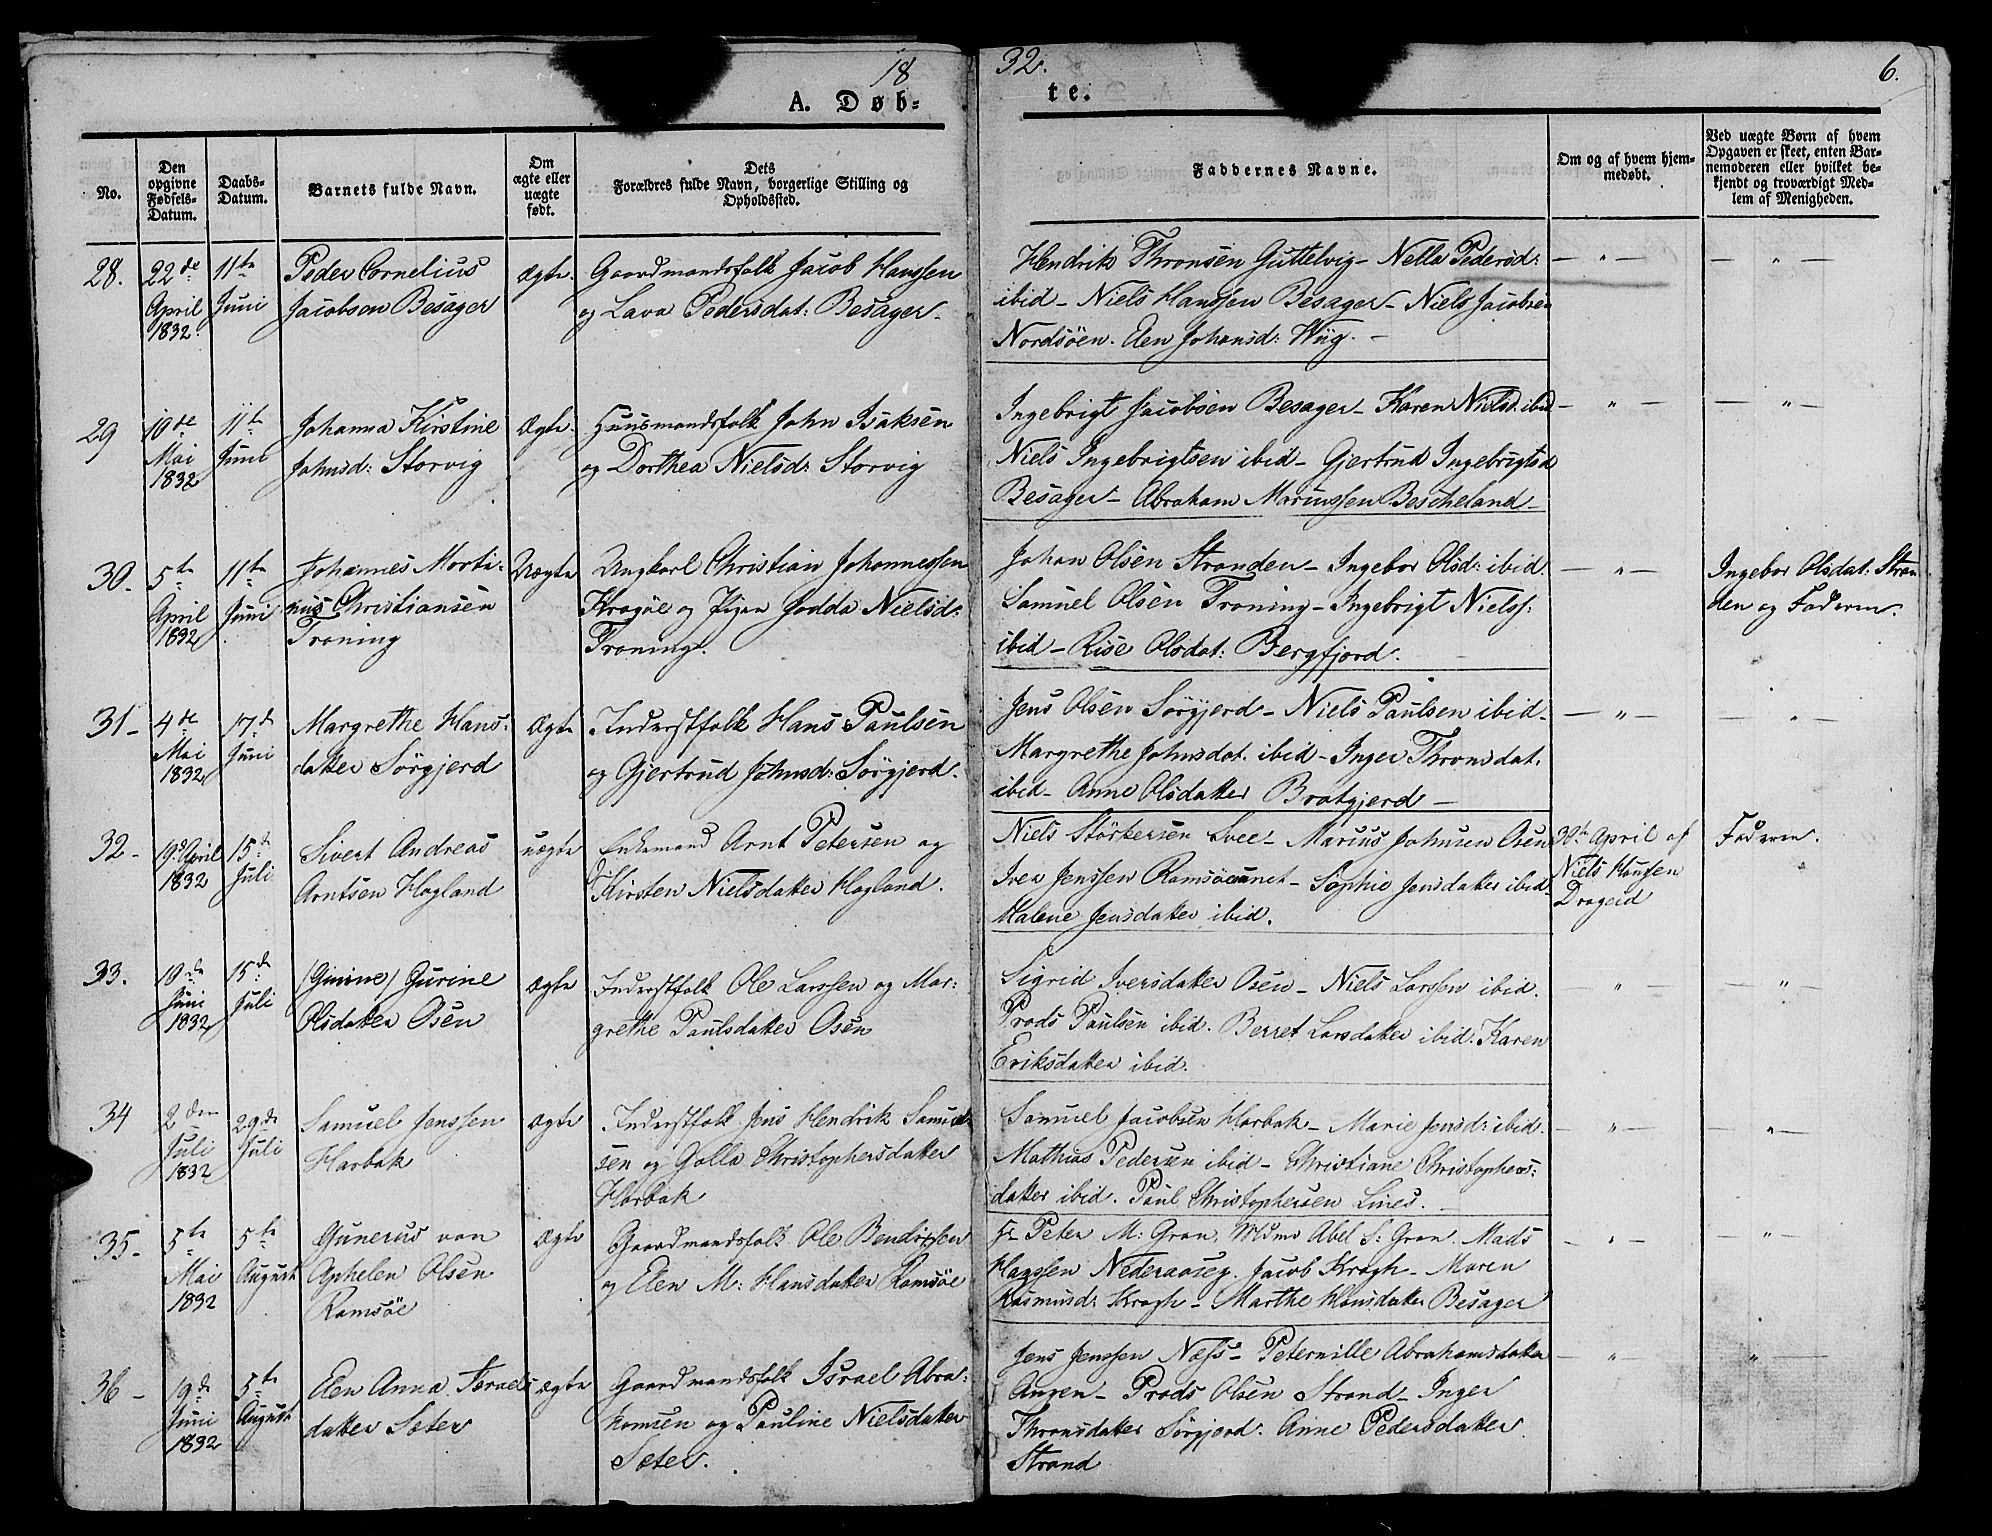 18
32.
6.
A. Døb-
te.
No.
Den opgivne Fødsels-Datum.
Daabs-Datum.
Barnets fulde Navn.
Om ægte eller uægte født.
Dets Forældres fulde Navn, borgerlige Stilling og Opholdssted.
Faddernes Navne.
Om og af hvem hjem-medøbt.
Ved uægte Børn af hvem Opgaven er skeet, enten Bar-nemoderen eller hvilket be-kjendt og troværdigt Med-lem af Menigheden.
28.
22de
April
1832.
11te
Juni
Peder Cornelius
Jacobsen Besager
Ægte
Gaardmandsfolk Jacob Hanssen
og Lava Pedersdat: Besager.
Hendrik Thronsen Guttelvig - Nella Pedersd:
ibid - Niels Hanssen Besager - Niels Jacobsen
Nordsöen. Elen Johansd: Wiig. -
- " -
- " -
29
10de
Mai
1832
11te
Juni
Johanna Kirstine
Johnsd: Storvig
Ægte.
Huusmandsfolk John Isaksen
og Dorthea Nielsd: Storvig
Ingebrigt Jacobsen Besager - Karen Nielsd: ibid
Niels Ingebrigtsen ibid - Gjertrud Ingebrigtsd
Besager - Abraham Mariussen Bescheland -
- " -
- " -
30.
5te
April
1832
11te
Juni
Johannes Morti-
nus Christiansen
Traning
Uægte
Ungkarl Christian Johannessen
Kragöe og Pigen Jodda Nielsd:
Traning.
Johan Olsen Stranden - Ingebor Olsd: ibid.
Samuel Olsen Traning - Ingebrigt Nielss:
ibid - Rise Olsdat: Bergfjord.
- " -
Ingebor Olsdat: Stran
den og Faderen.
31 -
4de
Mai
1832
17d
Juni
Margrethe Hans-
datter Sörgjerd
Ægte
Inderstfolk Hans Paulsen
og Gjertrud Johnsd: Sörgjerd.
Jens Olsen Sörgjerd - Niels Paulsen ibid -
Margrethe Johnsdat. ibid - Inger Thronsdat.
ibid - Anne Olsdatter Bratgjerd -
- " -
- " -
32 -
19d April
1832
15d
Juli
Sivert Andreas
Arntsen Hogland
uægte
Enkemand Arnt Petersen og
Kirsten Nielsdatter Hogland.
Niels Störkersen Svee - Marius Johnsen Osen
Iver Jenssen Ramsöesunet - Sophie Jensdatter ibid
Malene Jensdatter ibid.
30te April af
Niels Hanssen
Drageid
Faderen.
33.
10de
Juni
1832
15de
Juli
(Gunine) Gurine
Olsdatter Osen
Ægte
Inderstfolk Ole Larssen og Mar-
grethe Paulsdatter Osen
Sigrid Iversdatter Osen - Niels Larssen ibid.
Prods Paulsen ibid. Berret Larsdatter ibid. Karen
Eriksdatter ibid.
- " -
- " -
34
2den
Juli
1832
29de
Juli
Samuel Jenssen
Harbak
Ægte
Inderstfolk Jens Hendrik Samuel-
sen og Golla Christophersdatter
Harbak
Samuel Jacobsen Harbak - Marie Jensd: ibid.
Mathias Pedersen ibid - Christiane Christophers-
datter ibid. Paul Christophersen Lines. -
- " -
- " -
35 -
5te
Mai
1832
5te
August
Gunerus von
Aphelen Olsen
Ramsöe
Ægte
Gaardmandsfolk Ole Bendixsen
og Elen M: Hansdatter Ramsöe
Hr Peter M: Gran. Mdme Abel S: Gran. Mads
Hanssen Nederaasey. Jacob Krogh - Maren
Rasmusd: Krogh - Marthe Hansdatter Besager
- " -
- " -
36 -
19de
Juni
1832
5te
August
Elen Anna Israels
datter Sæter
Ægte
Gaardmandsfolk Israel Abra-
hamsen og Pauline Nielsdatter
Sæter.
Jens Jenssen Næss - Peternille Abrahamsdatter
Angen - Prods Olsen Strand - Inger
Thronsdatter Sörgjerd. Anne Pedersdatter
Strand
- " -
- " -